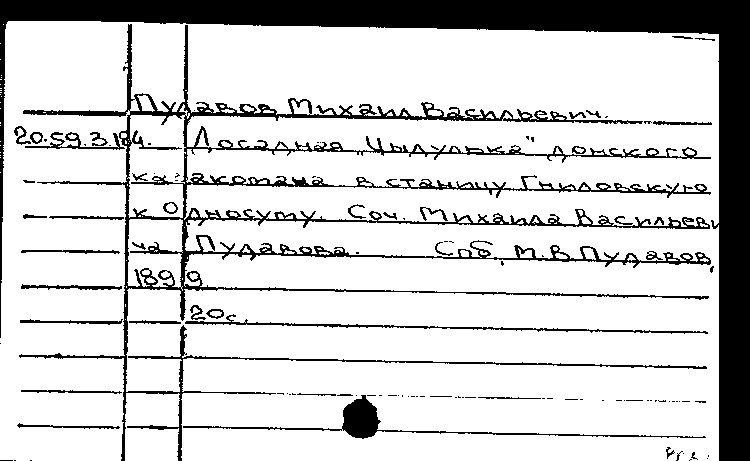 Пудавов, Михаил Васильевич.
20.59.3.184. Досадная „Цыдулька" донского
казакомана в станицу Гниловскую
к Односуму. Соч. Михаила Васильеви
ча Пудавова. Спб, М.В Пудавов,
1899
20с.